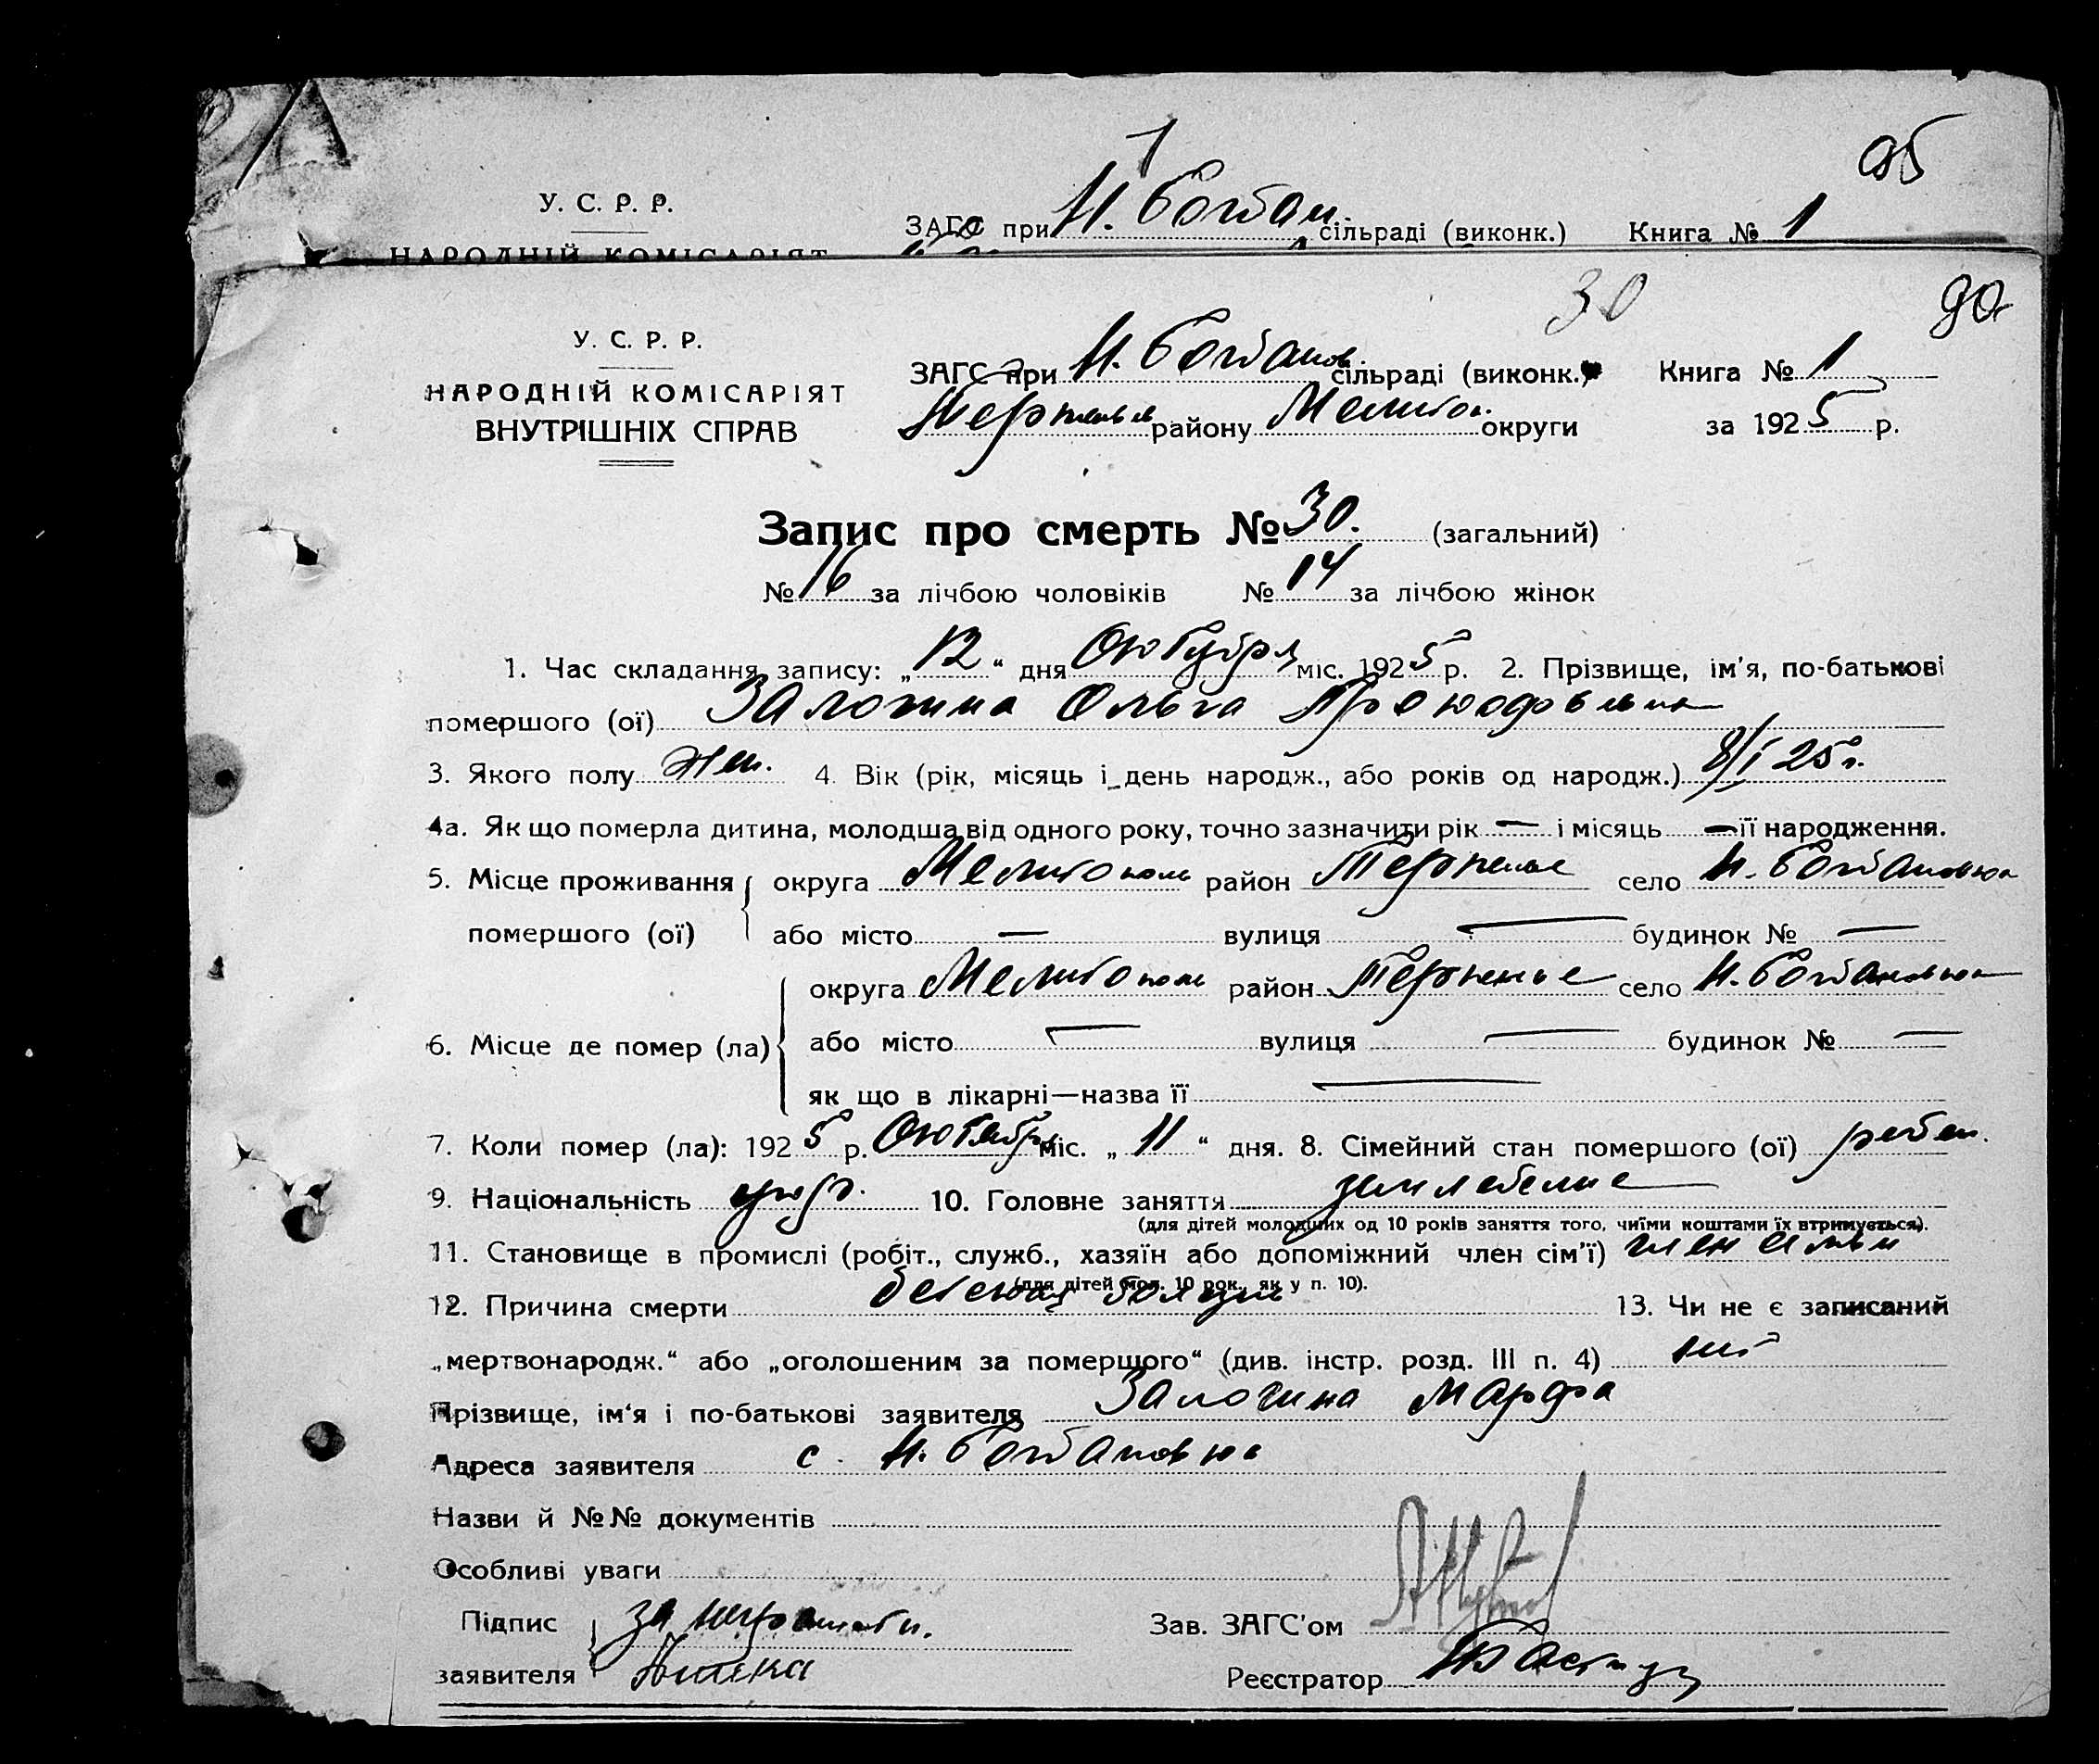 1
95
У. С. Р. Р.
ЗАГС при Н. Богдан. сільраді (виконк.) Книга № 1
НАРОДНІЙ КОМІСАРІЯТ
30
90
У. С. Р. Р.
НАРОДНІЙ КОМІСАРІЯТ
ВНУТРІШНІХ СПРАВ
ЗАГС при Н. Богданов сільраді (виконк.) Книга № 1
району Мелитоп. округи за 1925 р.
Запис про смерть № 30. (загальний)
№ 16 за лічбою чоловіків № 14 за лічбою жінок
1. Час складання запису: „12“ дня Октября міс. 1925 р. 2. Прізвище, ім'я, по-батькові
помершого (ої) Залогина Ольга
3. Якого полу жен. 4. Вік (рік, місяць і день народж., або років од народж.) 8/I 25 г.
4а. Як що померла дитина, молодша від одного року, точно зазначити рік — і місяць — її народження.
5. Місце проживання помершого (ої) округа Мелитополь район Терпенье село Н. Богдановка
або місто — вулиця — будинок № —
6. Місце де помер (ла) округа Мелитополь район Терпенье село Н. Богдановка
або місто — вулиця — будинок № —
як що в лікарні—назва її —
7. Коли помер (ла): 1925 р. Октябрь міс. „11“ дня. 8. Сімейний стан помершого (ої) ребен.
9. Національність 10. Головне заняття земледелие
(для дітей молодших од 10 років заняття того, чиїми коштами їх втримується).
11. Становище в промислі (робіт., служб., хазяїн або допоміжний член сім'ї) член семьи
(для дітей мол. 10 рок., як у п. 10).
12. Причина смерти детская 13. Чи не є записаний
„мертвонародж.“ або „оголошеним за помершого“ (див. інстр. розд. III п. 4) нет
Прізвище, ім'я і по-батькові заявителя Залогина Марфа
Адреса заявителя с. Н. Богдановка
Назви й №№ документів
Особливі уваги
Підпис заявителя за неграмотн.
Зав. ЗАГС'ом
Реєстратор